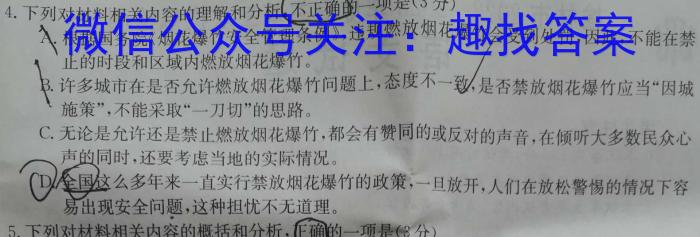 4. 下列对材料相关内容的理解和分析,不正确的一项是(3分)
微信公众号关注：趣找答案
A. 根据国务院《烟花爆竹安全管理条例》,违规燃放烟花爆竹会受到处罚,因此,不能在禁
止的时段和区域内燃放烟花爆竹。
B. 许多城市在是否允许燃放烟花爆竹问题上,态度不一致,是否禁放烟花爆竹应当“因城
施策”,不能采取“一刀切”的思路。
C. 无论是允许还是禁止燃放烟花爆竹,都会有赞同的或反对的声音,在倾听大多数民众心
声的同时,还要考虑当地的实际情况。
D. 全国这么多年来一直实行禁放烟花爆竹的政策,一旦放开,人们在放松警惕的情况下容
易出现安全问题,这种担忧不无道理。
5. 下列对材料相关内容的概括和分析,正确的一项是(3分)